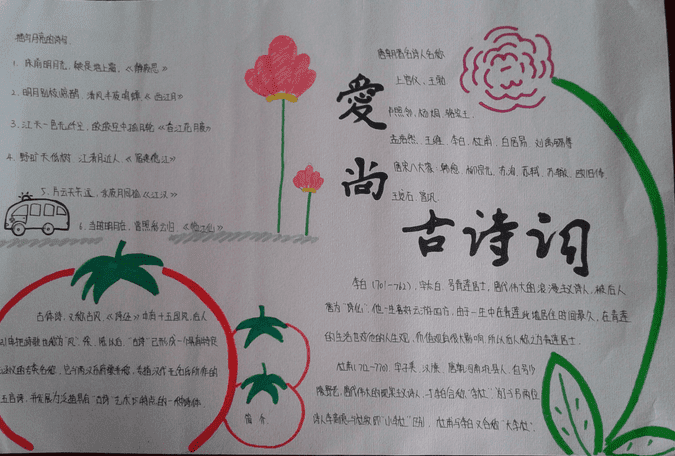 描写月亮的诗句
1、床前明月光,疑是地上霜。《静夜思》
2、明月别枝惊鹊,清风半夜鸣蝉《西江月》
3、江天一色无纤尘,皎皎空中孤月轮《春江花月夜》
4、野旷天低树,江清月近人。《宿建德江》
5、片云天共远,永夜月同孤《江汉》
6、当时明月在,曾照彩云归。《临江仙》
愛尚
古诗词
唐朝著名诗人名称
上官仪、王勃
卢照邻、杨炯、骆宾王、
孟浩然、王维、李白、杜甫、白居易、刘禹锡等
唐宋八大家:韩愈、柳宗元、苏洵、苏轼、苏辙、欧阳修
王安石、曾巩
李白(701-762),字太白,号青莲居士,唐代伟大的浪漫主义诗人,被后人
誉为"诗仙"。他一生喜好云游四方,由于一生中在青莲此地居住时间最久,在青莲
的生活且对他的人生观、价值观有很大影响,所以后人称之为青莲居士。
杜甫(712-770),字子美,汉族,唐朝河南巩县人,自号少
陵野老,唐代伟大的现实主义诗人,与李白合称"李杜"。为了与两位
诗人李商隐与杜牧即"小李杜"区别,杜甫与李白又合称"大李杜"。
古体诗,又称古风,《诗经》中有十五国风,后人
五言诗,
简介